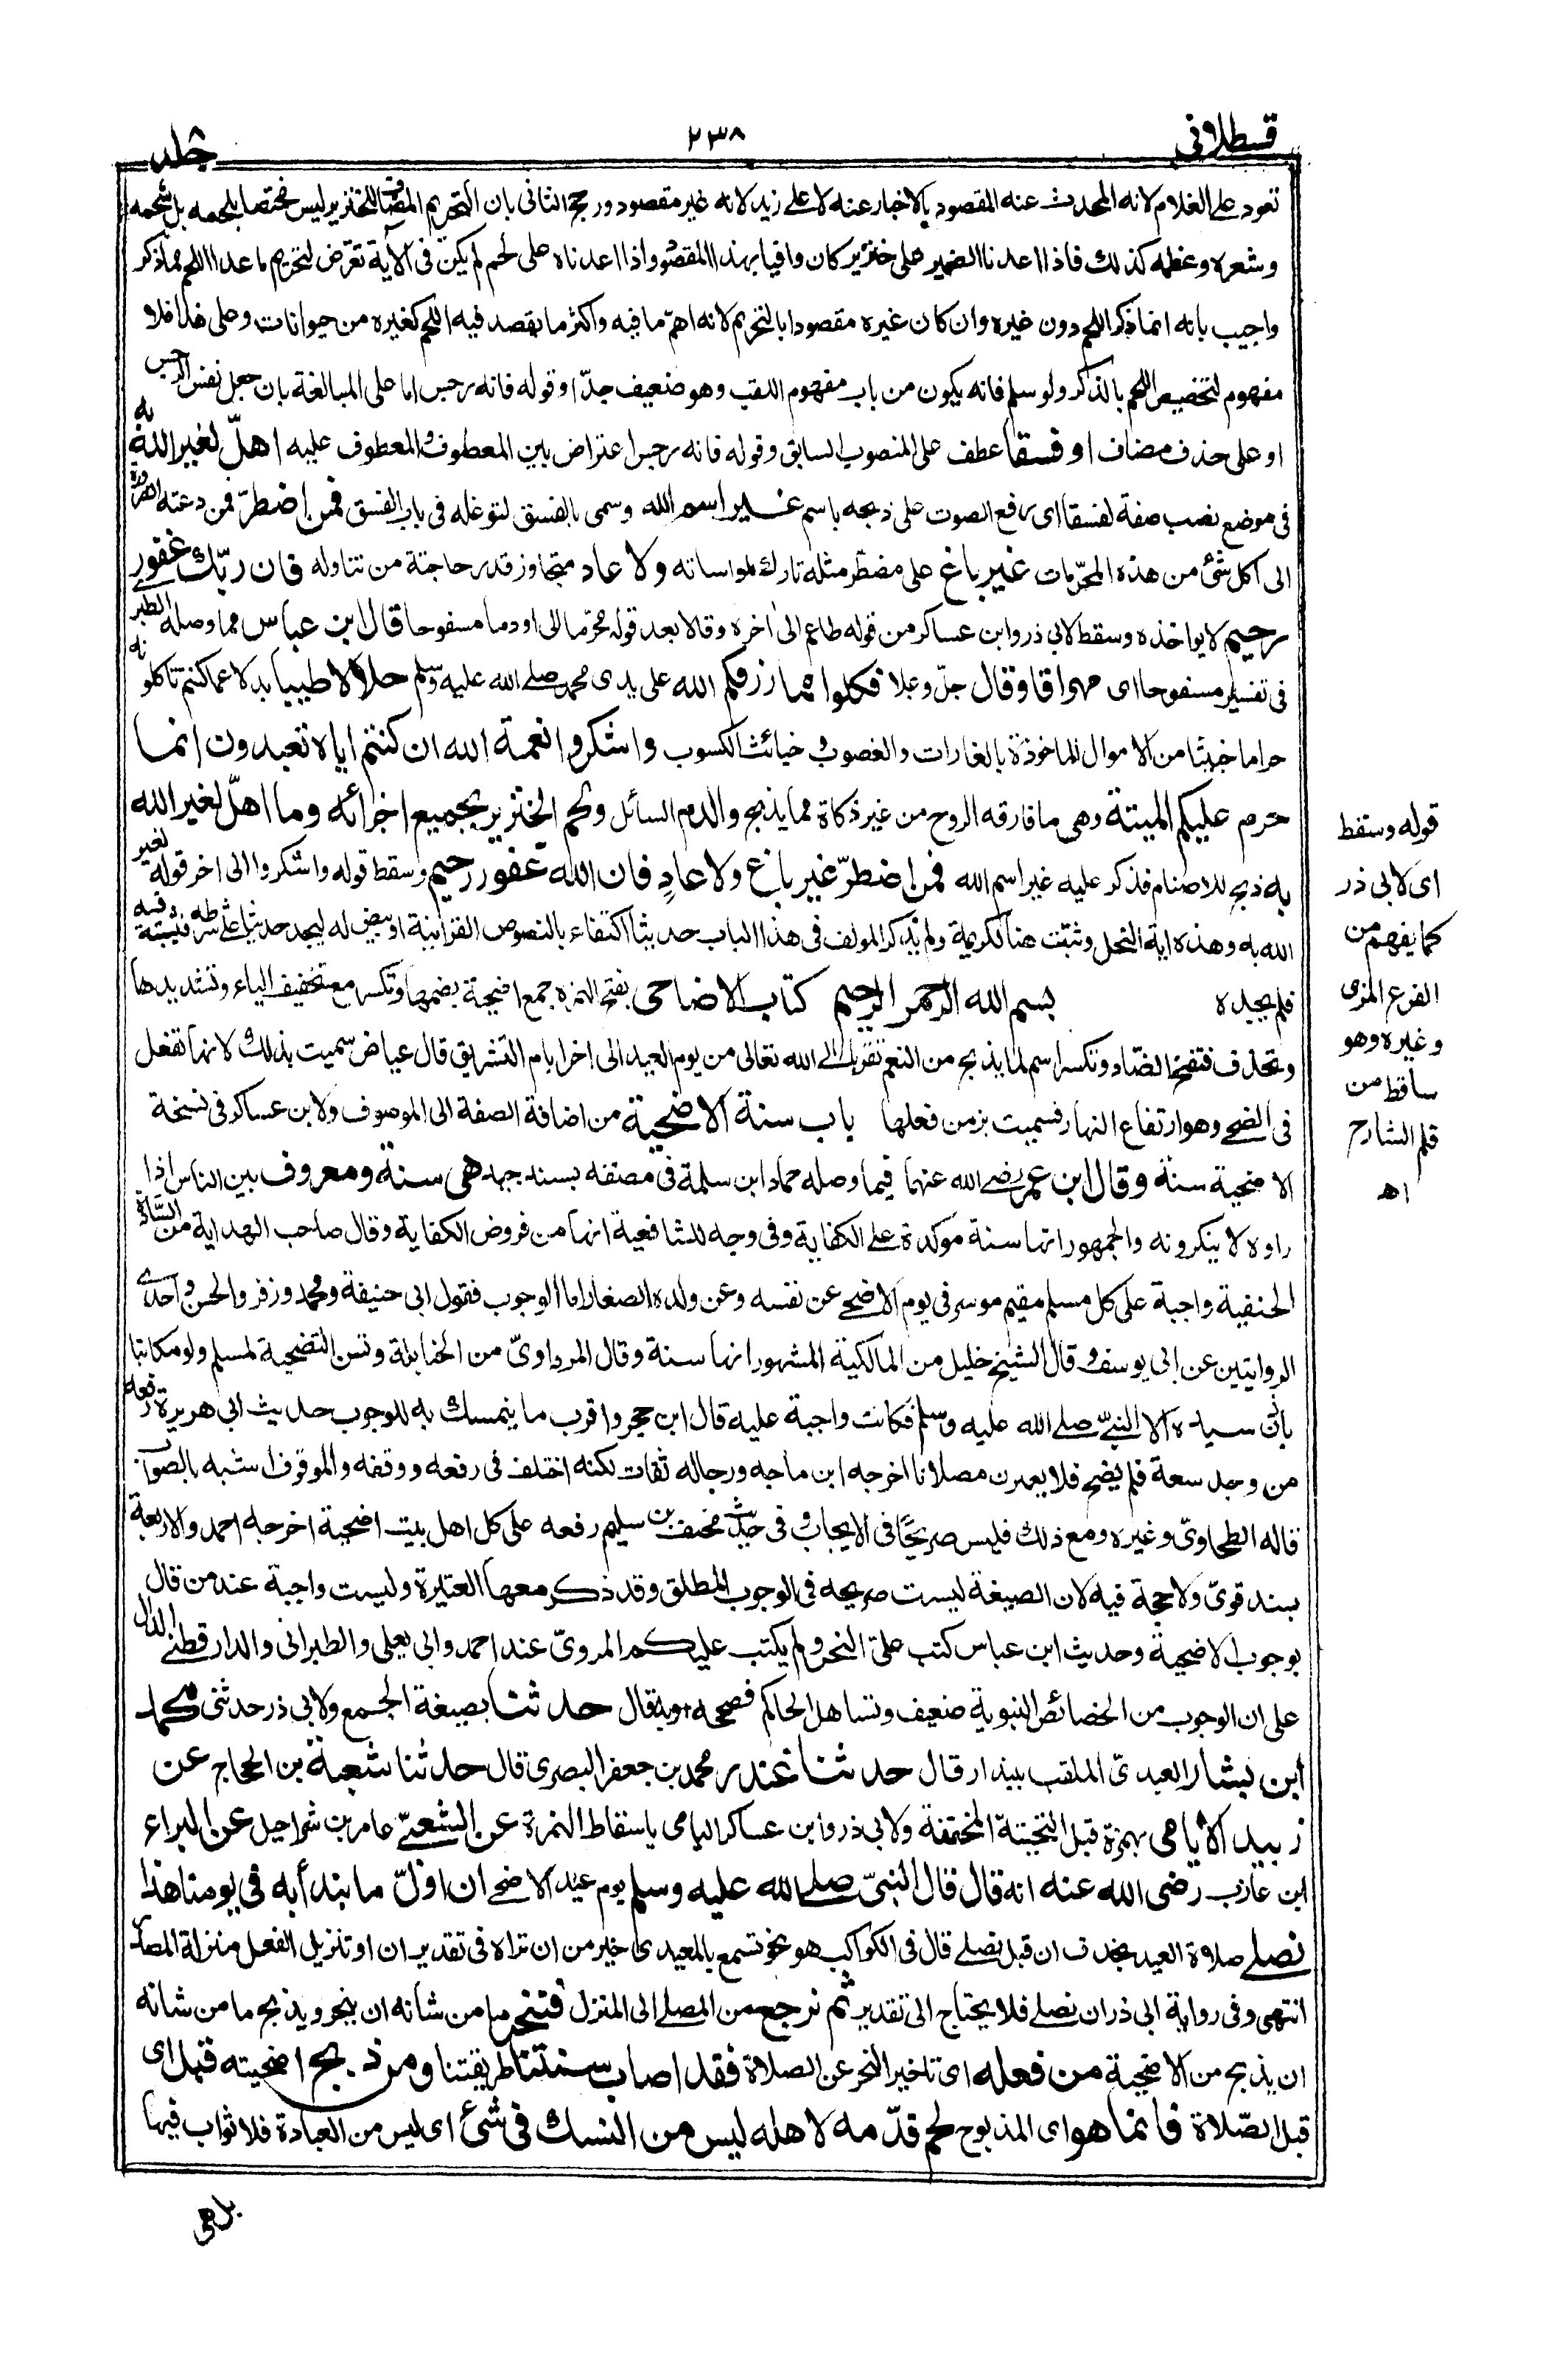 قسطلانى
٢٣٨
جلد ٨
تعود على الغلام لانه المحدث عنه المقصود بالاخبار عنه لا على زيد لانه غير مقصود ورجح الثانى بان التحريم المضاف للخنزير ليس مختصا بلحمه بل شحمه
وشعره وعظمه كذلك فاذا اعدنا الضمير على خنزير كان وافيا بهذا المقصود واذا اعدناه على لحم لم يكن فى الآية تعرّض لتحريم ما عدا اللحم مما ذكر
واجيب بانه انما ذكر اللحم دون غيره وان كان غيره مقصودا بالتحريم لانه اهمّ ما فيه واكثر ما يقصد فيه اللحم كغيره من حيوانات وعلى هذا فلا
مفهوم لتخصيص اللحم بالذكر ولو سلم فانه يكون من باب مفهوم اللقب وهو ضعيف جدّا وقوله فانه رجس اما على المبالغة بان جعل نفس الرجس
او على حذف مضاف او فسقا عطف على المنصوب السابق وقوله فانه رجس اعتراض بين المعطوف والمعطوف عليه اهلّ لغير الله به
فى موضع نصب صفة لفسقا اى رفع الصوت على ذبحه باسم غير اسم الله وسمى بالفسق لتوغله فى باب الفسق فمن اضطرّ فمن دعته الضرورة
الى اكل شئ من هذه المحرّمات غير باغ على مضطر مثله تارك لمواساته ولا عاد متجاوز قدر حاجته من تناوله فان ربّك غفور
رحيم لا يواخذه وسقط لابى ذر وابن عساكر من قوله طاعم الى اخره وقالا بعد قوله محرّما الى او دما مسفوحا قال ابن عباس مما وصله الطبر
فى تفسير مسفوحا اى مهراقا وقال جلّ وعلا فكلوا مما رزقكم الله على يدى محمد صلى الله عليه وسلم حلالا طيبا بدلا عما كنتم تاكلونه
حراما خبيثا من الاموال الماخوذة بالغارات والغصوب وخبائث الكسوب واشكروا نعمة الله ان كنتم اياه تعبدون انما
حرم عليكم الميتة وهى ما فارقه الروح من غير ذكاة مما يذبح والدم السائل ولحم الخنزير بجميع اجزائه وما اهلّ لغير الله
به ذبح للاصنام فذكر عليه غير اسم الله فمن اضطرّ غير باغ ولا عادٍ فان الله غفور رحيم وسقط قوله واشكروا الى اخر قوله لغير
الله به وهذه اية النحل وثبتت هنا لكريمة ولم يذكر المولف فى هذا الباب حديثا اكتفاء بالنصوص القرانية او بيض له ليجد حديثا على شرطه فيثبته فيه
فلم يجده بسم الله الرحمن الرحيم كتاب الاضاحى بفتح الهمزة جمع اضحية بضمها وتكسر مع تخفيف الياء وتشديدها
وتحذف فتفتح الضاد وتكسر اسم لما يذبح من النعم تقربا الى الله تعالى من يوم العيد الى اخر ايام التشريق قال عياض سميت بذلك لانها تفعل
فى الضحى وهو ارتفاع النهار فسميت بزمن فعلها باب سنة الاضحية من اضافة الصفة الى الموصوف ولابن عساكر فى نسخة
الاضحية سنة وقال ابن عمر رضى الله عنهما فيما وصله حماد ابن سلمة فى مصنفه بسند جيد هى سنة ومعروف بين الناس اذا
راوه لا ينكرونه والجمهور انها سنة موكدة على الكفاية وفى وجه للشافعية انها من فروض الكفاية وقال صاحب الهداية من السّادة
الحنفية واجبة على كل مسلم مقيم موسر فى يوم الاضحى عن نفسه وعن ولده الصغار اما الوجوب فقول ابى حنيفة ومحمد وزفر والحسن واحدى
الروايتين عن ابى يوسف وقال الشيخ خليل من المالكية المشهور انها سنة وقال المرداوىّ من الحنابلة وتسن التضحية لمسلم ولو مكاتبا
باذن سيده الا النبىّ صلى الله عليه وسلم فكانت واجبة عليه قال ابن حجر واقرب ما يتمسك به للوجوب حديث ابى هريرة رفعه
من وجد سعة فلم يضح فلا يقربن مصلانا اخرجه ابن ماجه ورجاله ثقات لكنه اختلف فى رفعه ووقفه والموقوف اشبه بالصواب
قاله الطحاوىّ وغيره ومع ذلك فليس صريحًا فى الايجاب وفى حديث مخنف بن سليم رفعه على كل اهل بيت اضحية اخرجه احمد والاربعة
بسند قوىّ ولا حجة فيه لان الصيغة ليست صريحه فى الوجوب المطلق وقد ذكر معها العتيرة وليست واجبة عند من قال
بوجوب الاضحية وحديث ابن عباس كتب علىّ النحر ولم يكتب عليكم المروىّ عند احمد وابى يعلى والطبرانى والدارقطنى الدال
على ان الوجوب من الخصائص النبوية ضعيف وتساهل الحاكم فصححه وبه قال حدثنا بصيغة الجمع ولابى ذر حدثنى محمد
ابن بشار العبدىّ الملقب ببندار قال حدثنا غندر محمد بن جعفر البصرى قال حدثنا شعبة بن الحجاج عن
زبيد الايامى بهمزة قبل التحتية المخففة ولابى ذر وابن عساكر اليامى باسقاط الهمزة عن الشعبىّ عامر بن شراحيل عن البراء
ابن عازب رضى الله عنه انه قال قال النبىّ صلى الله عليه وسلم يوم عيد الاضحى ان اوّل ما نبدأ به فى يومنا هذا
نصلى صلاة العيد بحذف ان قبل نصلى قال فى الكواكب هو نحو تسمع بالمعيدى خير من ان تراه فى تقدير ان او تنزيل الفعل منزلة المصدر
انتهى وفى رواية ابى ذر ان نصلى فلا يحتاج الى تقدير ثم نرجع من المصلى الى المنزل فننحر ما من شانه ان ينحر ويذبح ما من شانه
ان يذبح من الاضحية من فعله اى تاخير النحر عن الصلاة فقد اصاب سنتنا طريقتنا ومن ذبح اضحيته قبل اى
قبل الصّلاة فانما هو اى المذبوح لحم قدّمه لاهله ليس من النسك فى شئ اى ليس من العبادة فلا ثواب فيها
بل هى
قوله وسقط
اى لابى ذر
كما يفهم من
الفرع المزى
وغيره وهو
ساقط من
قلم الشارح
اه